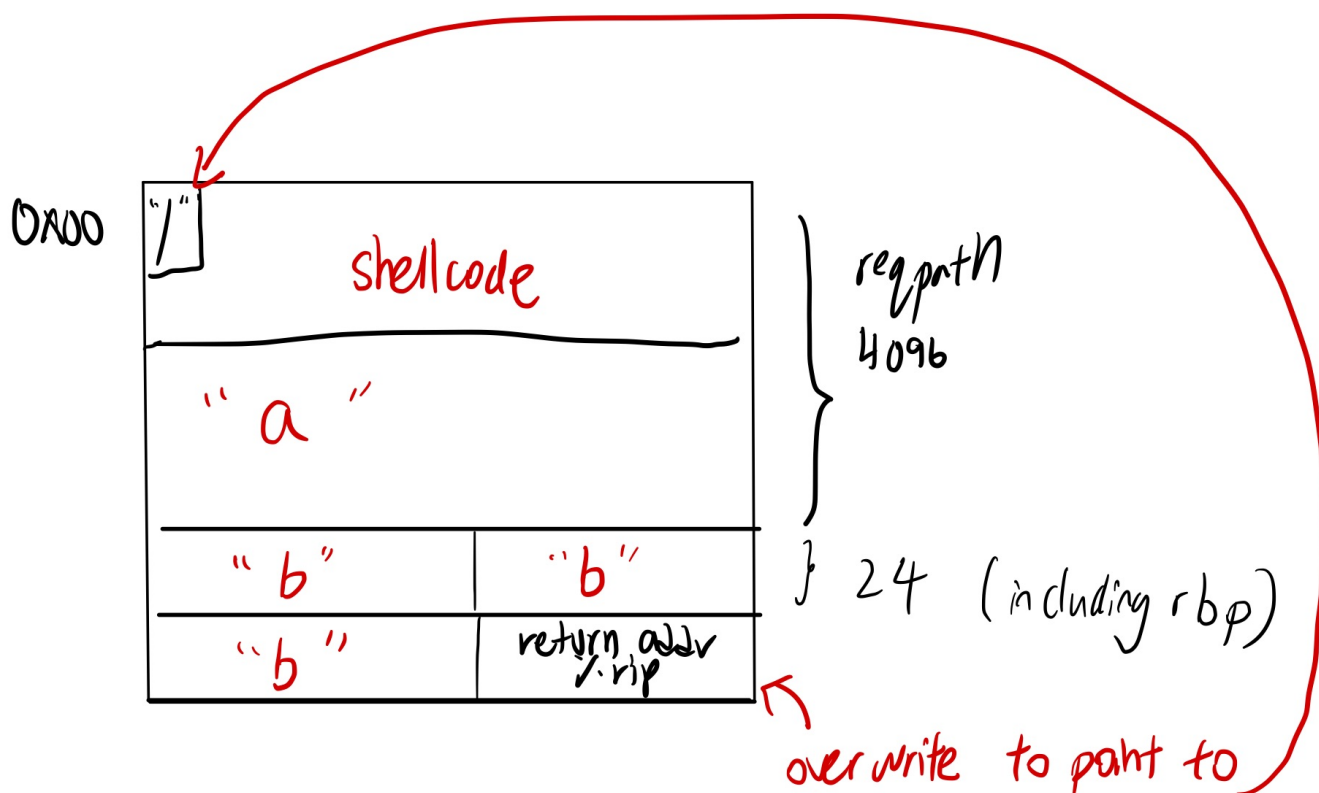 0x00
"/"
shellcode
reqpath
4096
"a"
"b" "b"
} 24 (including rbp)
"b"
return addr
%rip
overwrite to point to